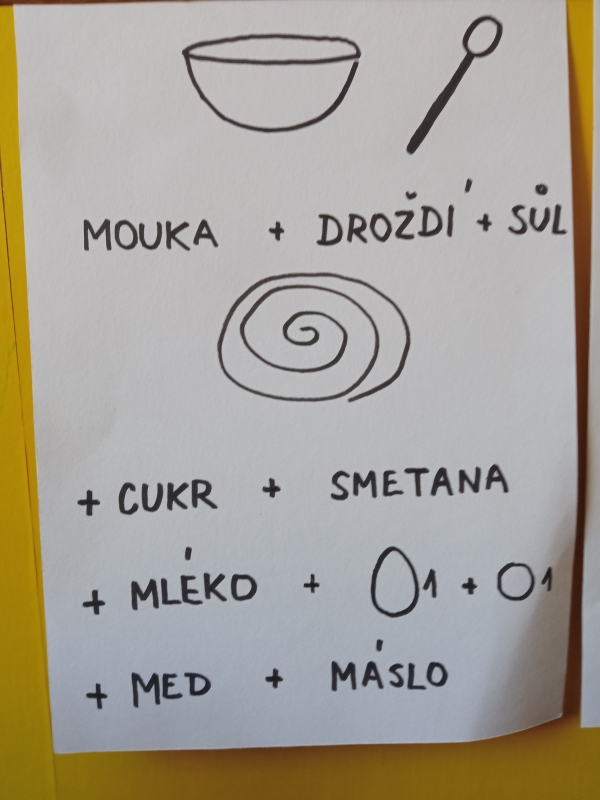 MOUKA + DROŽDÍ + SŮL
+ CUKR + SMETANA
+ MLÉKO + 1 + 1
+ MED + MÁSLO